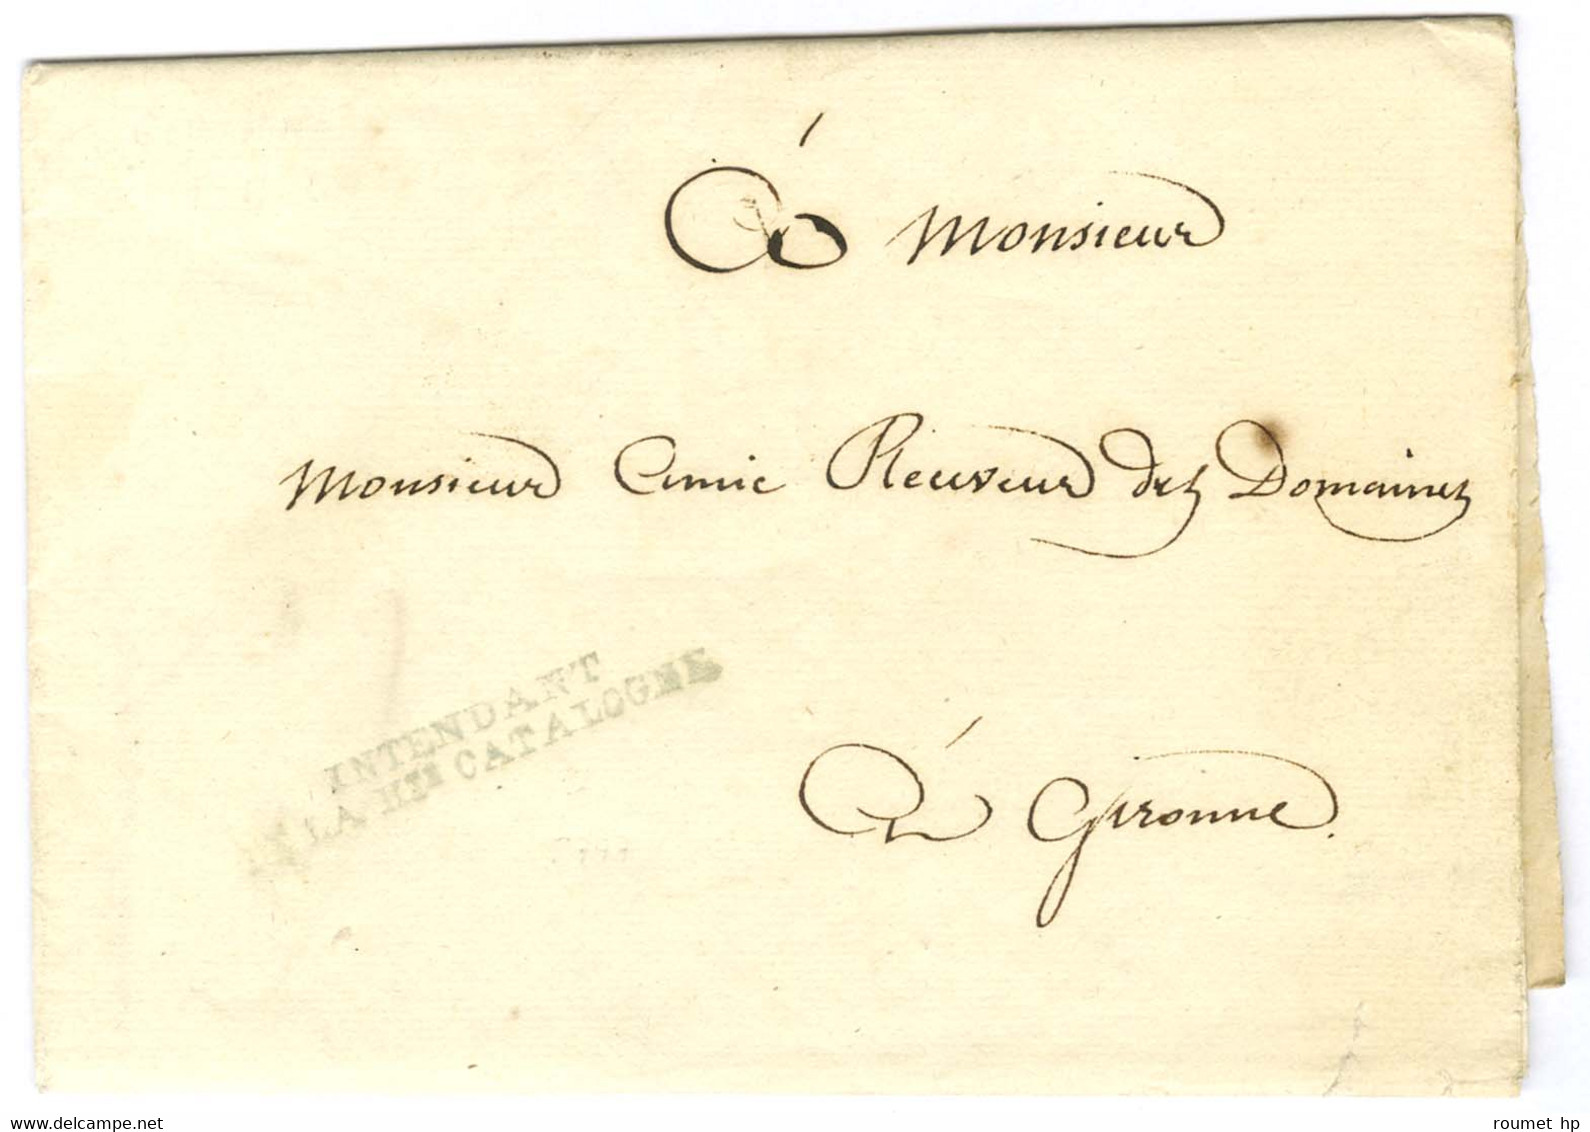 À Monsieur
Monsieur Amic Receveur des Domaines
INTENDANT
DE LA HTE CATALOGNE
À Gironne.
www.delcampe.net
roumet hp